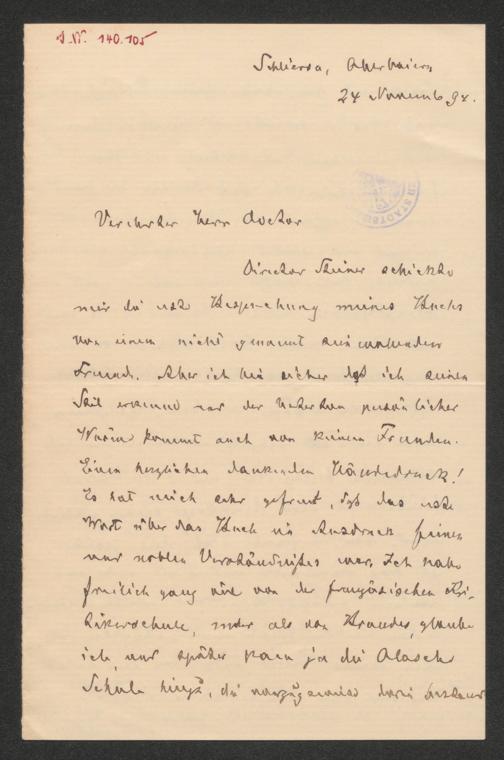 J.N. 140.105
Schliersee, Oberbaiern
24 Novemb. 94.
STADTB
Verehrter Herr Doctor
Director Steiner schickte
mir die erste Besprechung meines Buchs
von einem nicht genannt sein wollenden
Freund. Aber ich bin sicher daß ich seinen
Stil erkenne und der Unterton persönlicher
Wärme kommt auch von keinem Fremden.
Einen herzlichen dankenden Händedruck!
Es hat mich sehr gefreut, daß das erste
Wort über das Buch ein Ausdruck feinen
und noblen Verständnißes war. Ich habe
freilich ganz viel von der französischen Kri-
tikerschule, mehr als von Brandes, glaube
ich, und später kam ja die
Schule hinzu, die vorzugsweise darin